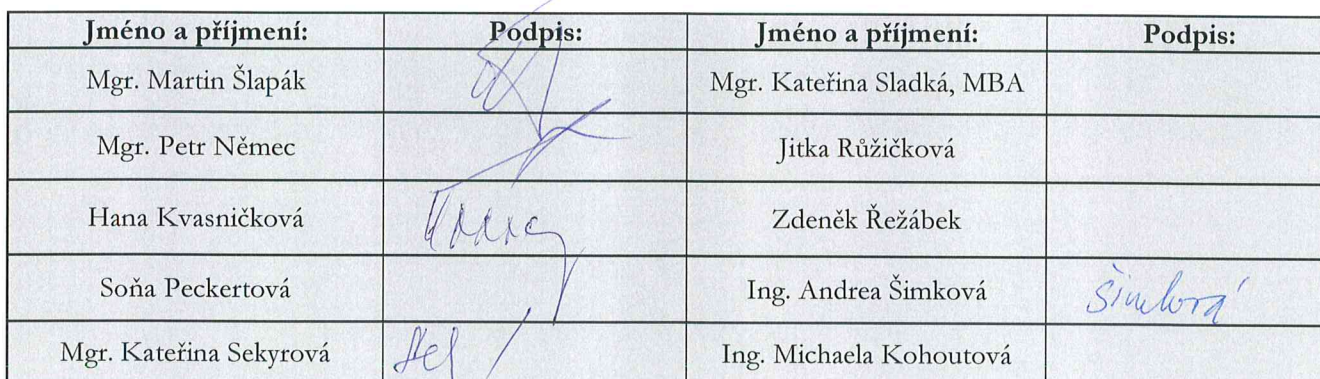 Jméno a příjmení: Podpis: Jméno a příjmení: Podpis:
Mgr. Martin Šlapák Mgr. Kateřina Sladká, MBA
Mgr. Petr Němec Jitka Růžičková
Hana Kvasničková Zdeněk Řežábek
Soňa Peckertová Ing. Andrea Šimková Šimková
Mgr. Kateřina Sekyrová Ing. Michaela Kohoutová